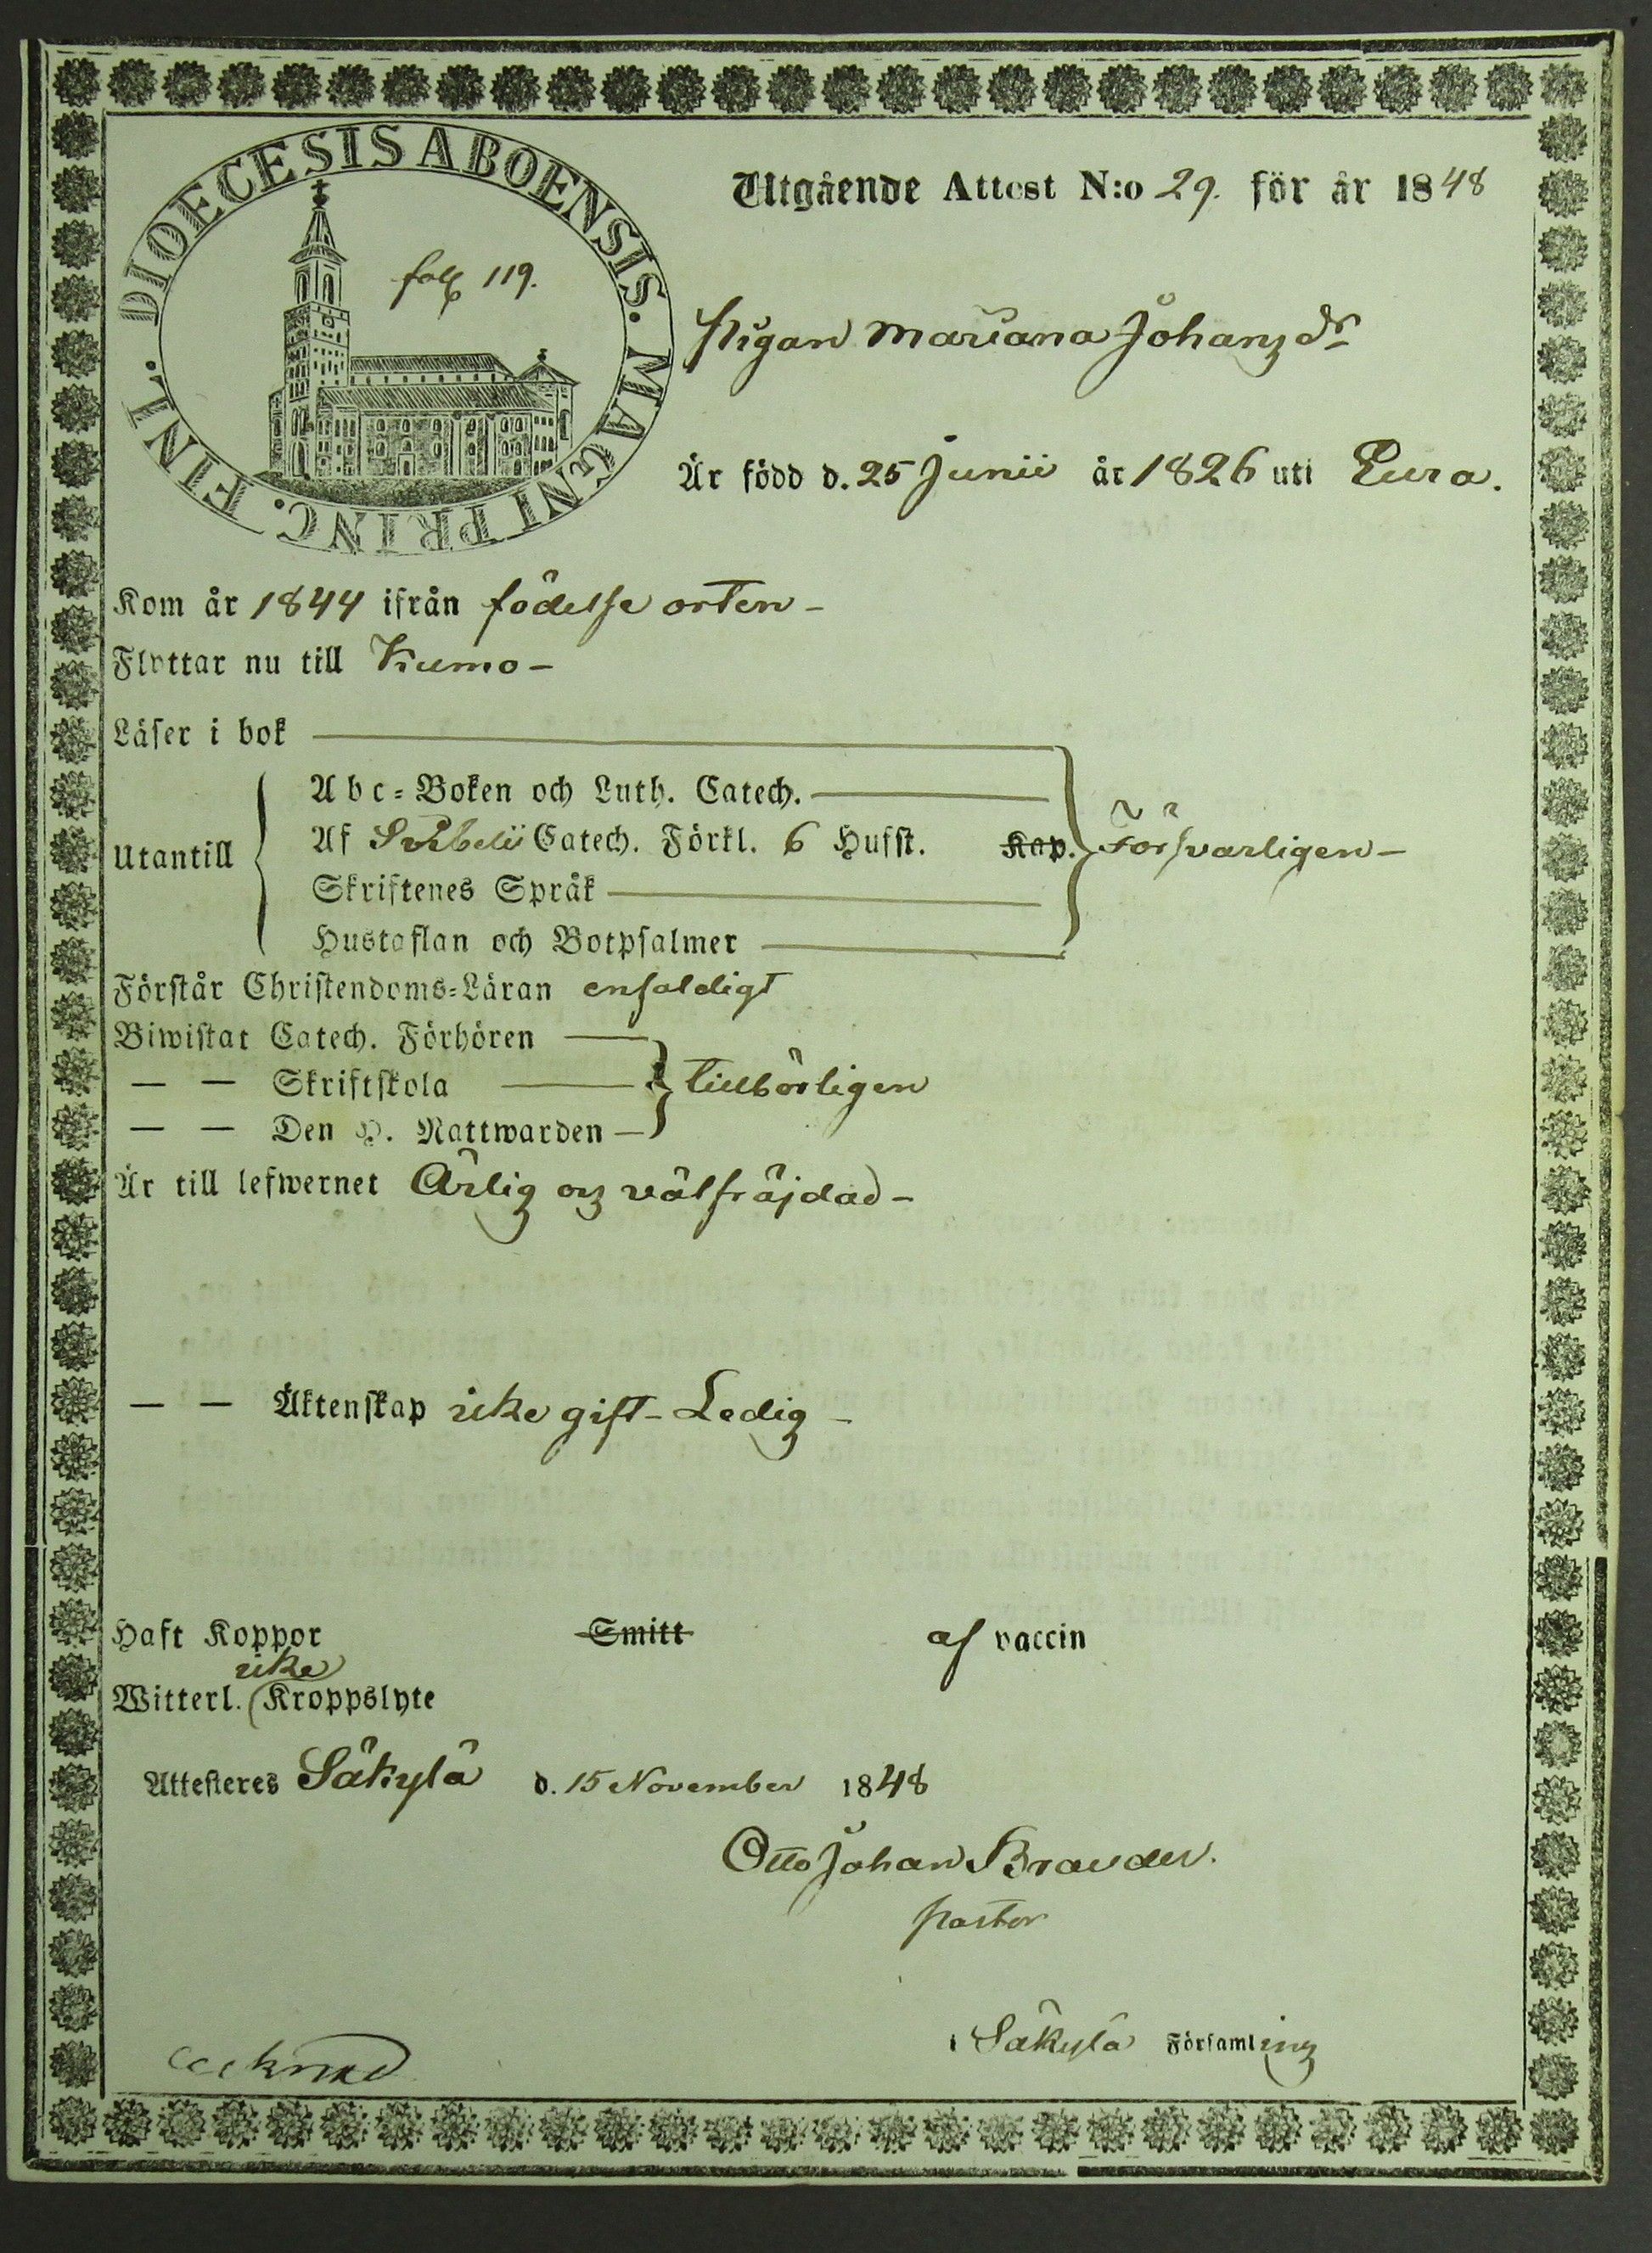 DIOECESIS ABOENSIS. MAGNI PRINC. FINL.
fol. 119.
Utgående Attest N:o 29. för år 1848
Pigan Mariana Johansdr
Är född d. 25 Junii år 1826 uti Eura.
Kom år 1844 ifrån födelse orten -
Flyttar nu till Kumo -
Läser i bok
Utantill
Abc-Boken och Luth. Catech.
Af Svebelii Catech. Förkl. 6 Hufst. Kap. Försvarligen -
Skriftenes Språk
Hustaflan och Botpsalmer
Förstår Christendoms-Läran enfaldigt
Biwistat Catech. Förhören
— — Skriftskola tillbörligen
— — Den H. Nattwarden
Är till lefwernet Ärlig och välfräjdad -
— — Äktenskap icke gift - Ledig -
Haft Koppor Smitt af vaccin
icke
Witterl. Kroppslyte
Attesteres Säkylä d. 15 November 1848
Otto Johan Brander.
Pastor
i Säkylä Församling